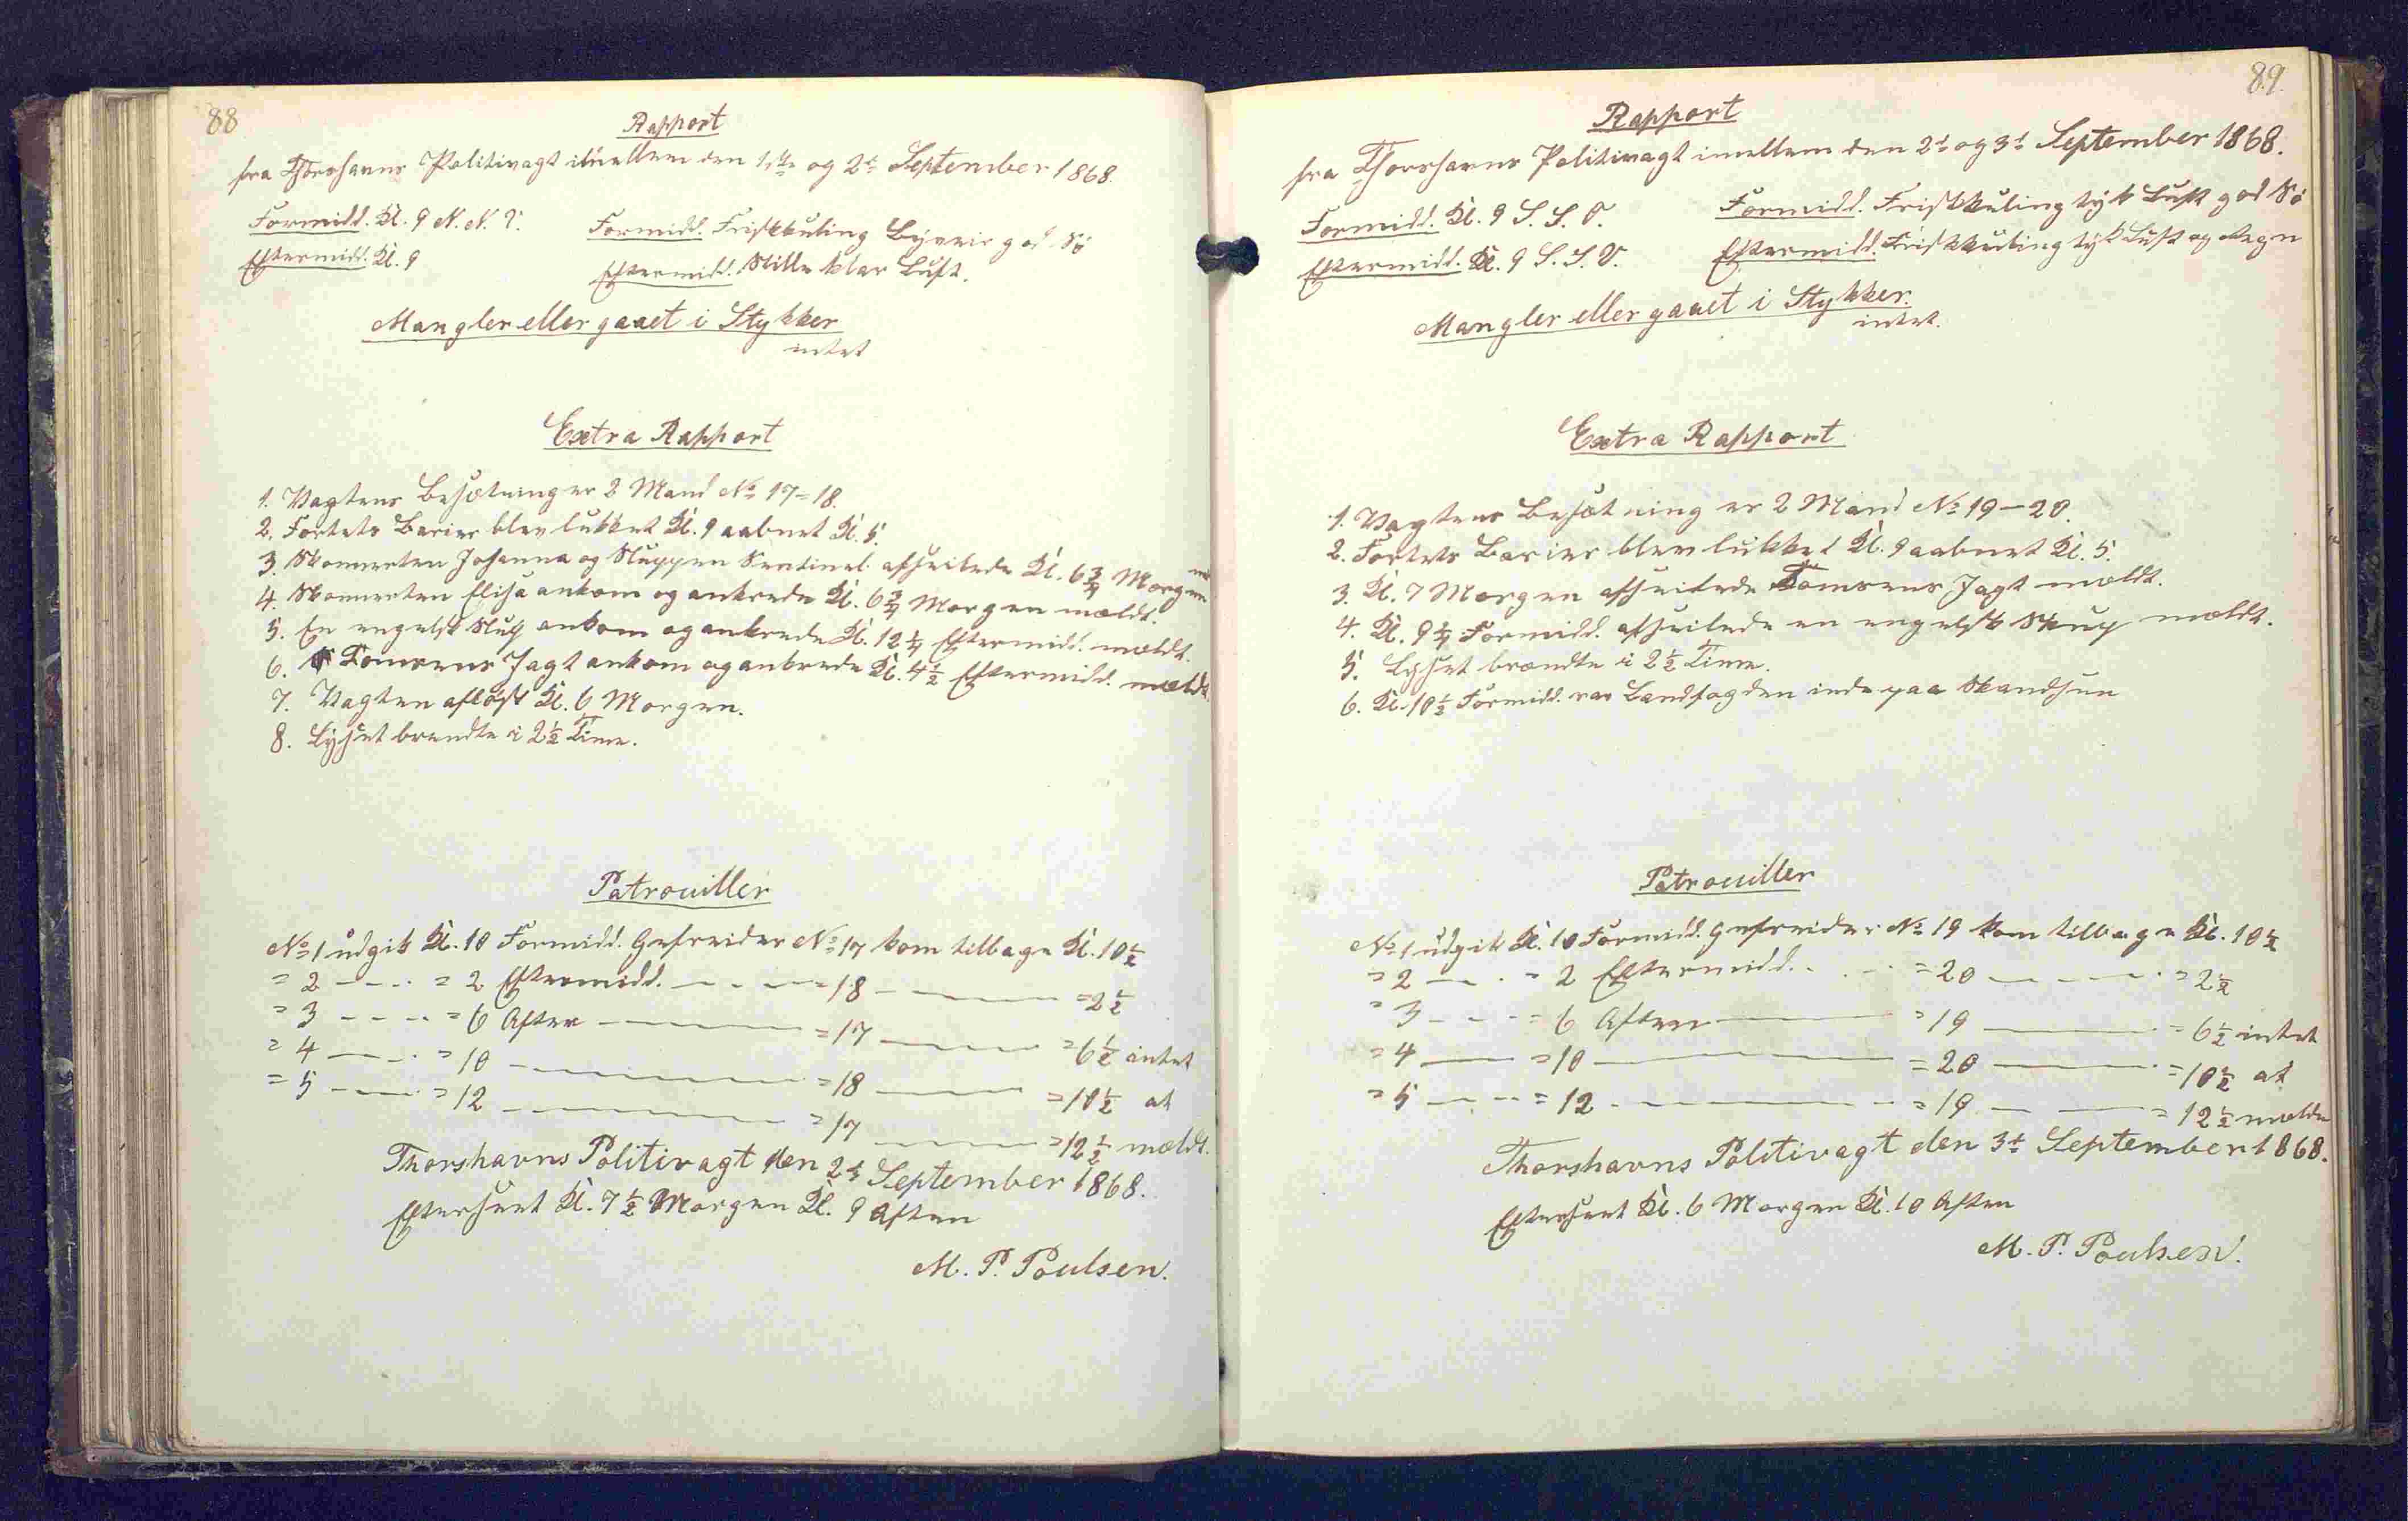 88
Rapport
fra Thorshavns Politivagt imellem den 1ste og 2d September 1868.
Formidd. Kl. 9 N. N. V. Formidd. Friskkuling Byeveir god Sö
Eftermidd. Kl. 9 Eftermidd. Stille klar Luft.
Mangler eller gaaet i Stykker
intet
Extra Rapport
1. Vagtens Besætning er 2 Mand No 17=18.
2. Fortets Barier blev lukket Kl. 9 aabnet Kl. 5.
3. Skonnerten Johanna og Sluppen Sentinel afseilede Kl. 6 3/4 Morgen
4. Skonnerten Elisa ankom og ankrede Kl. 6 3/4 Morgen mældt.
5. En engelsk Slup ankom og ankrede Kl. 12 1/4 Eftermidd. mældt.
6. Tomsens Jagt ankom og ankrede Kl. 4 1/2 Eftermidd. mældt.
7. Vagten aflöst Kl. 6 Morgen.
8. Lyset brendte i 2 1/2 Time.
Patrouiller
No 1 udgik Kl. 10 Formidd. Gefreider No 17 kom tilbage Kl. 10 1/2
= 2 - - - = 2 Eftermidd. - - - =18 - - - =2 1/2
= 3 - - - = 6 Aften - - - =17 - - - =6 1/2 intet
= 4 - - - =10 - - - =18 - - - =10 1/2 at
= 5 - - - =12 - - - =17 - - - =12 1/2 mældt.
Thorshavns Politivagt den 2d September 1868.
Efterseet Kl. 7 1/2 Morgen Kl. 9 Aften
M. P. Poulsen.
89.
Rapport
fra Thorshavns Politivagt imellem den 2d og 3d September 1868.
Formidd. Kl. 9 S. S. O. Formidd. Friskkuling tyk Luft god Sö
Eftermidd. Kl. 9 S. S. V. Eftermidd. Friskkuling tyk Luft og Regn
Mangler eller gaaet i Stykker.
intet.
Extra Rapport
1. Vagtens Besætning er 2 Mand No 19-20.
2. Fortets Barier blev lukket Kl. 9 aabnet Kl. 5.
3. Kl. 7 Morgen afseilede Tomsens Jagt mældt.
4. Kl. 9 1/4 Formidd. afseilede en engelsk Slup mældt.
5. Lyset brændte i 2 1/2 Time.
6. Kl. 10 1/2 Formidd. var Landfogden inde paa Skandsen
Patrouiller
No 1 udgik Kl. 10 Formidd. Gefreider No 19 kom tilbage Kl. 10 1/2
= 2 - - - = 2 Eftermidd. - - - =20 - - - =2 1/2
= 3 - - - = 6 Aften - - - =19 - - - =6 1/2 intet
= 4 - - - =10 - - - =20 - - - =10 1/2 at
= 5 - - - =12 - - - =19 - - - =12 1/2 melde
Thorshavns Politivagt den 3d September 1868.
Efterseet Kl. 6 Morgen Kl. 10 Aften
M. P. Poulsen.